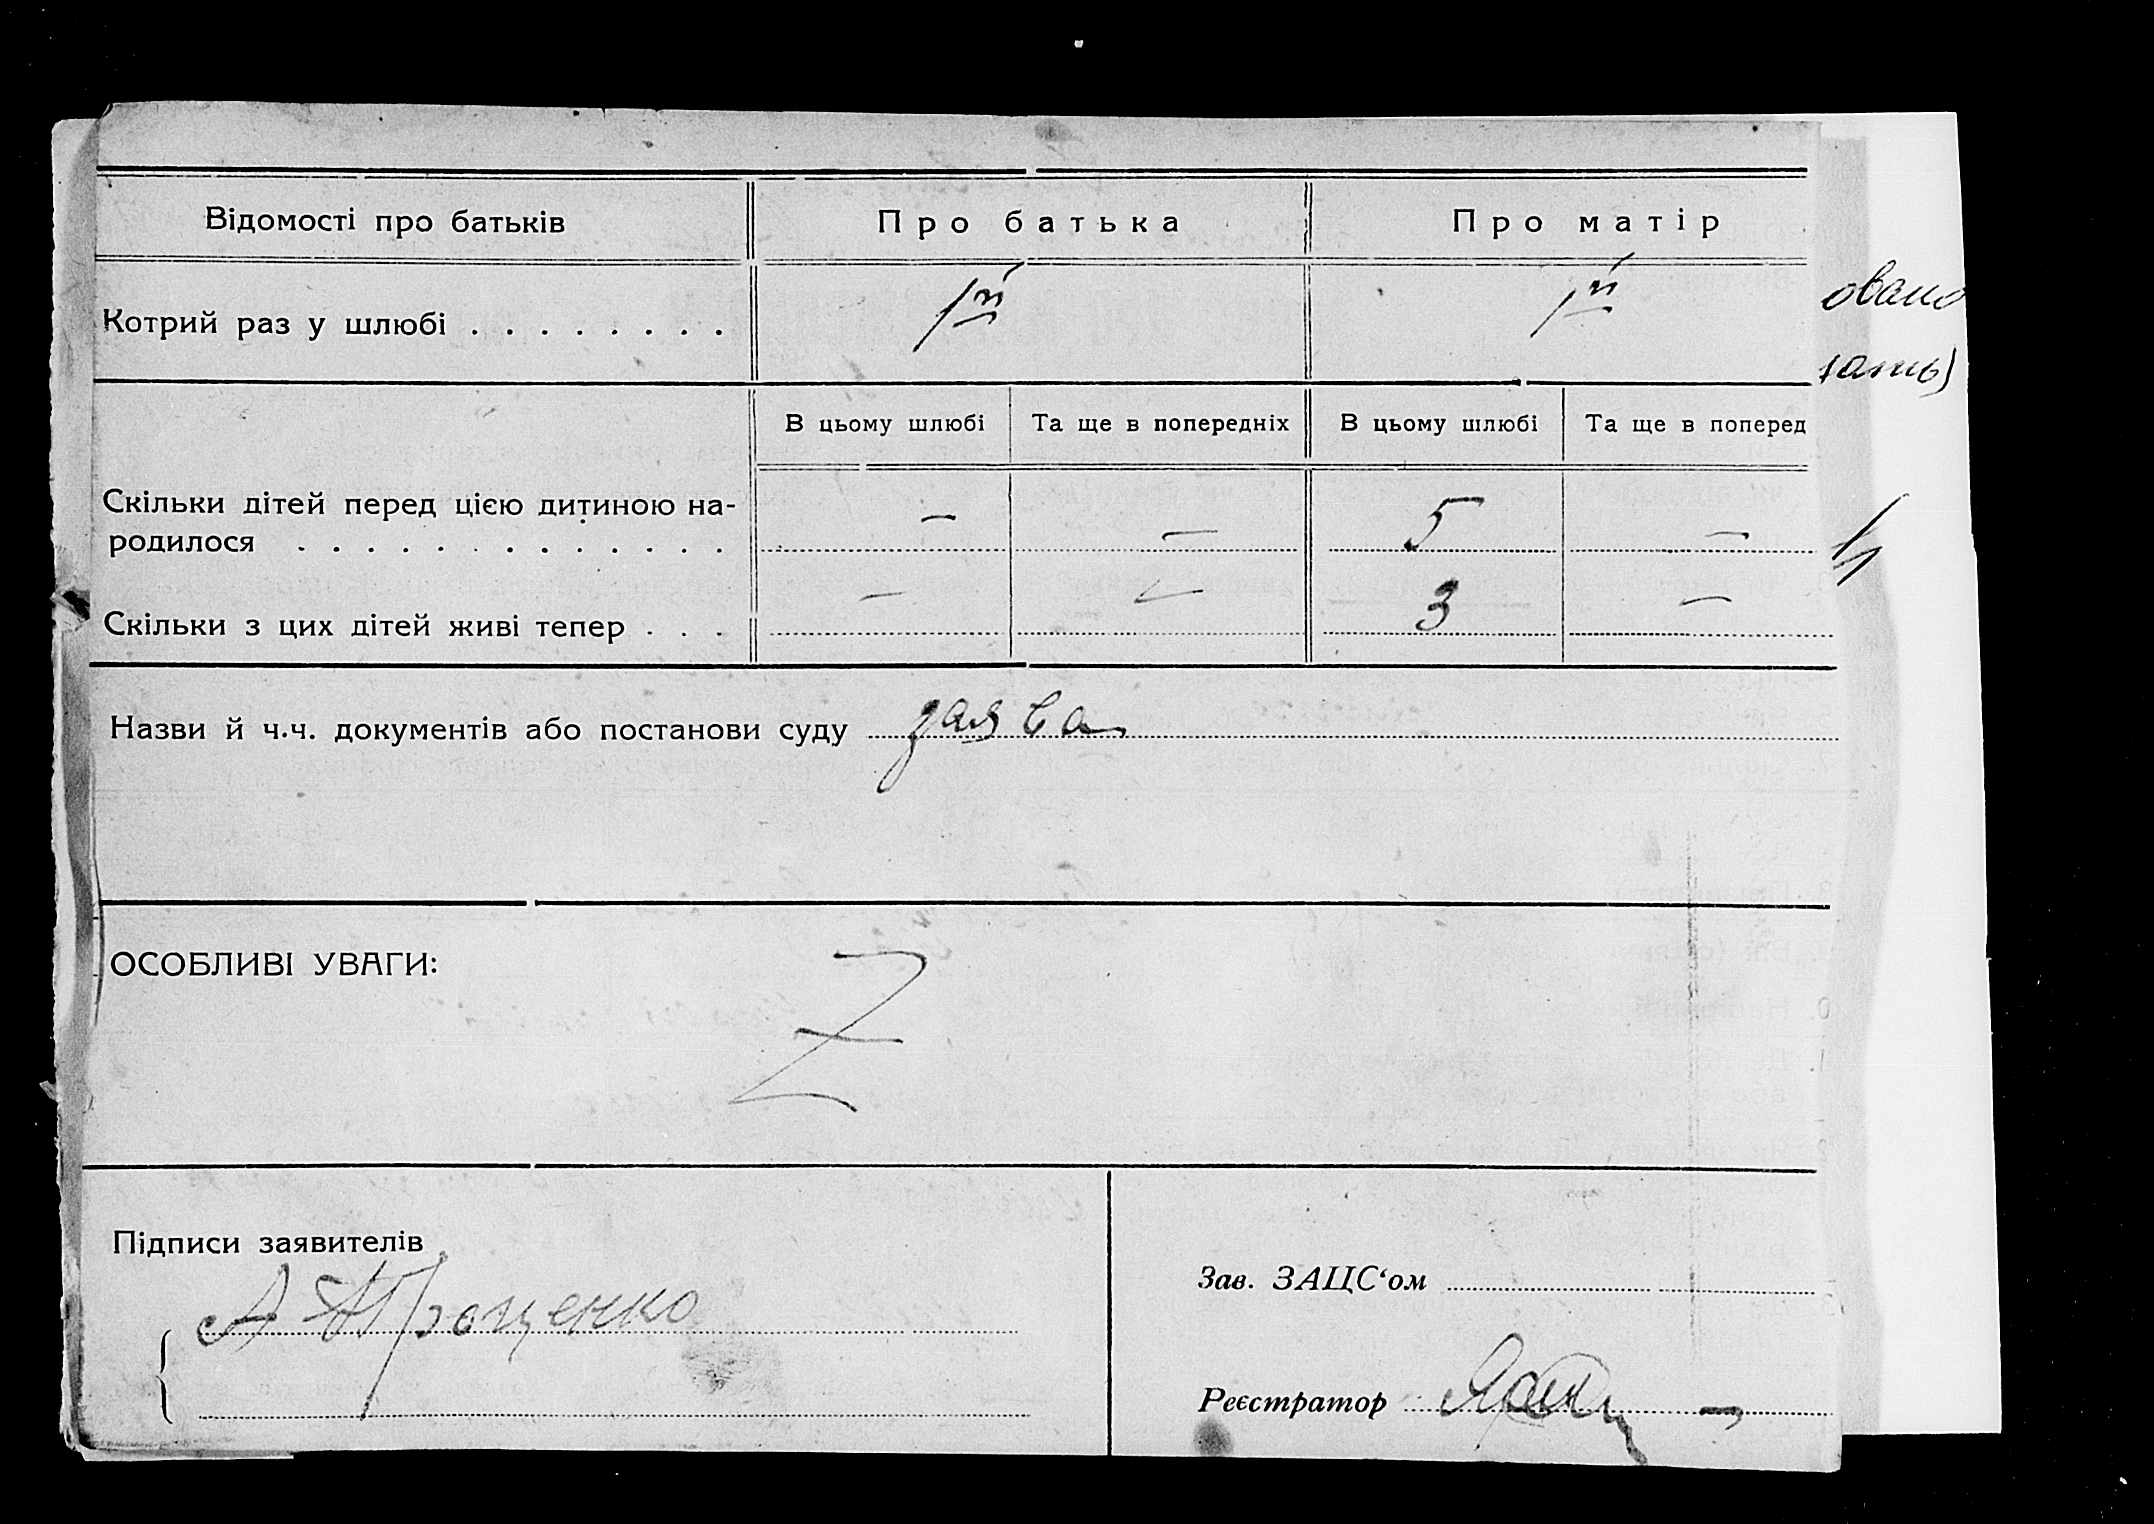 Відомості про батьків Про батька Про матір
Котрий раз у шлюбі . . . . . . . . 1й 1й
овано
В цьому шлюбі Та ще в попередніх В цьому шлюбі Та ще в поперед
Скільки дітей перед цією дитиною на-
родилося . . . . . . . . . . . . . – – 5 –
Скільки з цих дітей живі тепер . . . – – 3 –
Назви й ч.ч. документів або постанови суду заява
ОСОБЛИВІ УВАГИ:
Z
Підписи заявителів
А Трощенко
Зав. ЗАЦС‘ом
Реєстратор